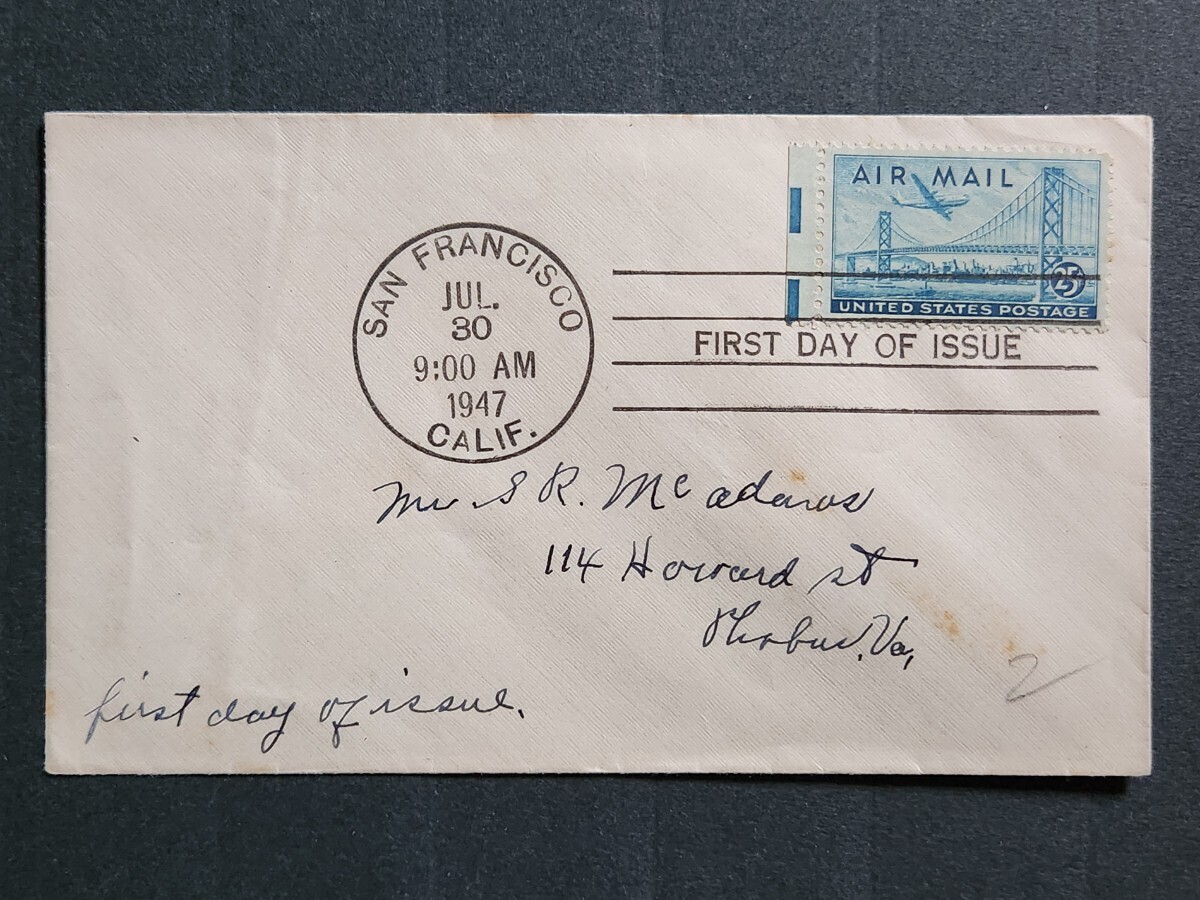 AIR MAIL
25¢
UNITED STATES POSTAGE
SAN FRANCISCO
JUL.
30
9:00 AM
1947
CALIF.
FIRST DAY OF ISSUE
Mr S R. Mc adams
114 Howard st
Phobus, Va,
first day of issue.
2